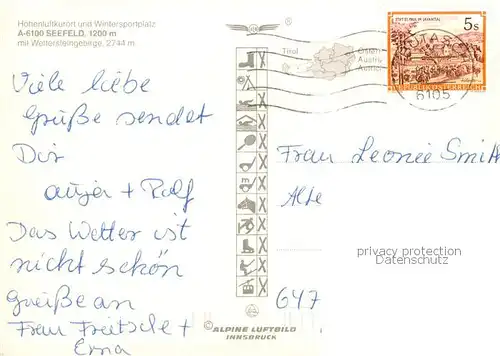 Höhenluftkurort und Wintersportplatz
A-6100 SEEFELD, 1200 m
mit Wettersteingebirge, 2744 m
Viele liebe
Grüße sendet
Dir
+ Ralf
Das Wetter ist
nicht schön
Grüße an
Frau Fritsche +
Erna
Tirol
5s
STIFT ST. PAUL IM LAVANTTAL
REPUBLIK ÖSTERREICH
6105
Frau Leonie Smith
Alte
privacy protection
Datenschutz
647
© ALPINE LUFTBILD
INNSBRUCK